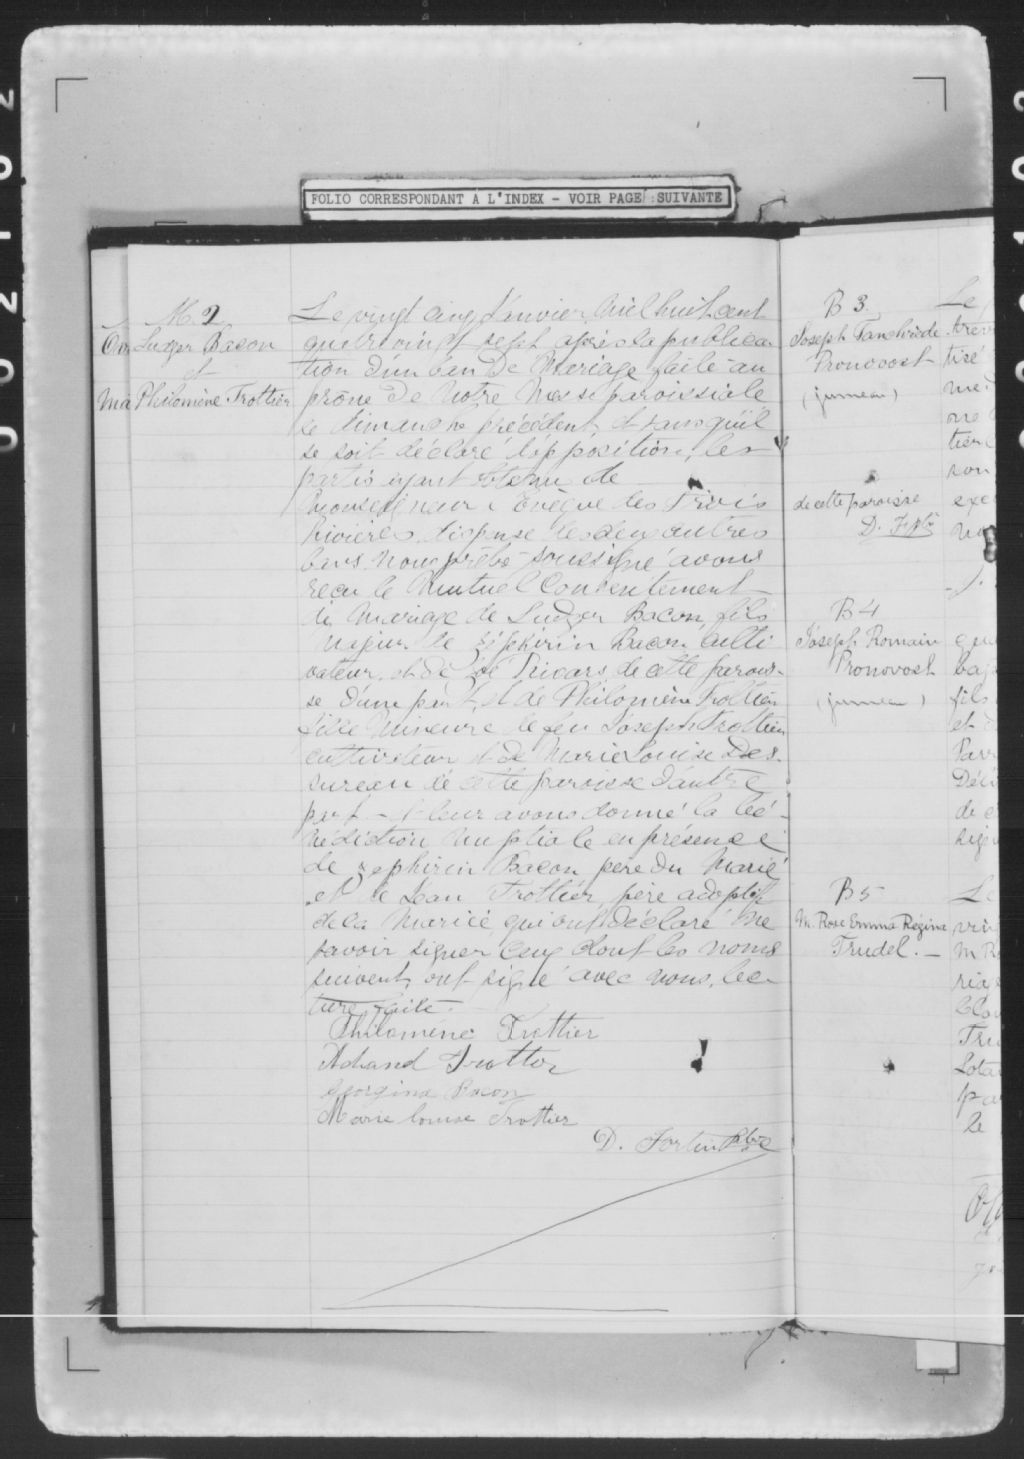 FOLIO CORRESPONDANT A L'INDEX - VOIR PAGE SUIVANTE
M. 2
Ludger Bacon
et
Philomène Trottier
Ma
Le vingt cinq Janvier, Mil huit cent
quatrevingt sept après la publica
tion d'un ban de Mariage faite au
prône de Notre Messe paroissiale
le dimanche précédent, et sans qu'il
se soit déclaré d'opposition, les
partis ayant obtenu de
Monseigneur l'Evèque des Trois
Rivières dispense des deux autres
bans, Nous prêtre soussigné avons
reçu le Mutuel Consentement
de Mariage de Ludger Bacon, fils
Majeur de Zéphirin Bacon Culti
vateur, et de de cette parois-
se d'une part, et de Philomène Trottier
fille Mineure de feu Joseph Trottier
cultivateur et de Marie Louise Des
sureau de cette paroisse d'autre
part - et leur avons donné la bé-
nédiction Nuptiale en présence
de Zephirin Bacon père du Marié
et de Jean Trottier, père adoptif
de la Mariée, qui ont déclaré Ne
savoir signer Ceux dont les noms
suivent, ont signé avec nous, lec-
ture faite.
Philomène Trottier
Trottier
Georgina Bacon
Marie louise Trottier
D. Fortin Ptre
B 3
Joseph Tanchrède
Pronovost
(jumeau)
de cette paroisse
D. F. ptr
B 4
Joseph Romain
Pronovost
(jumeau)
B 5
M. Rose Emma Régina
Trudel. -